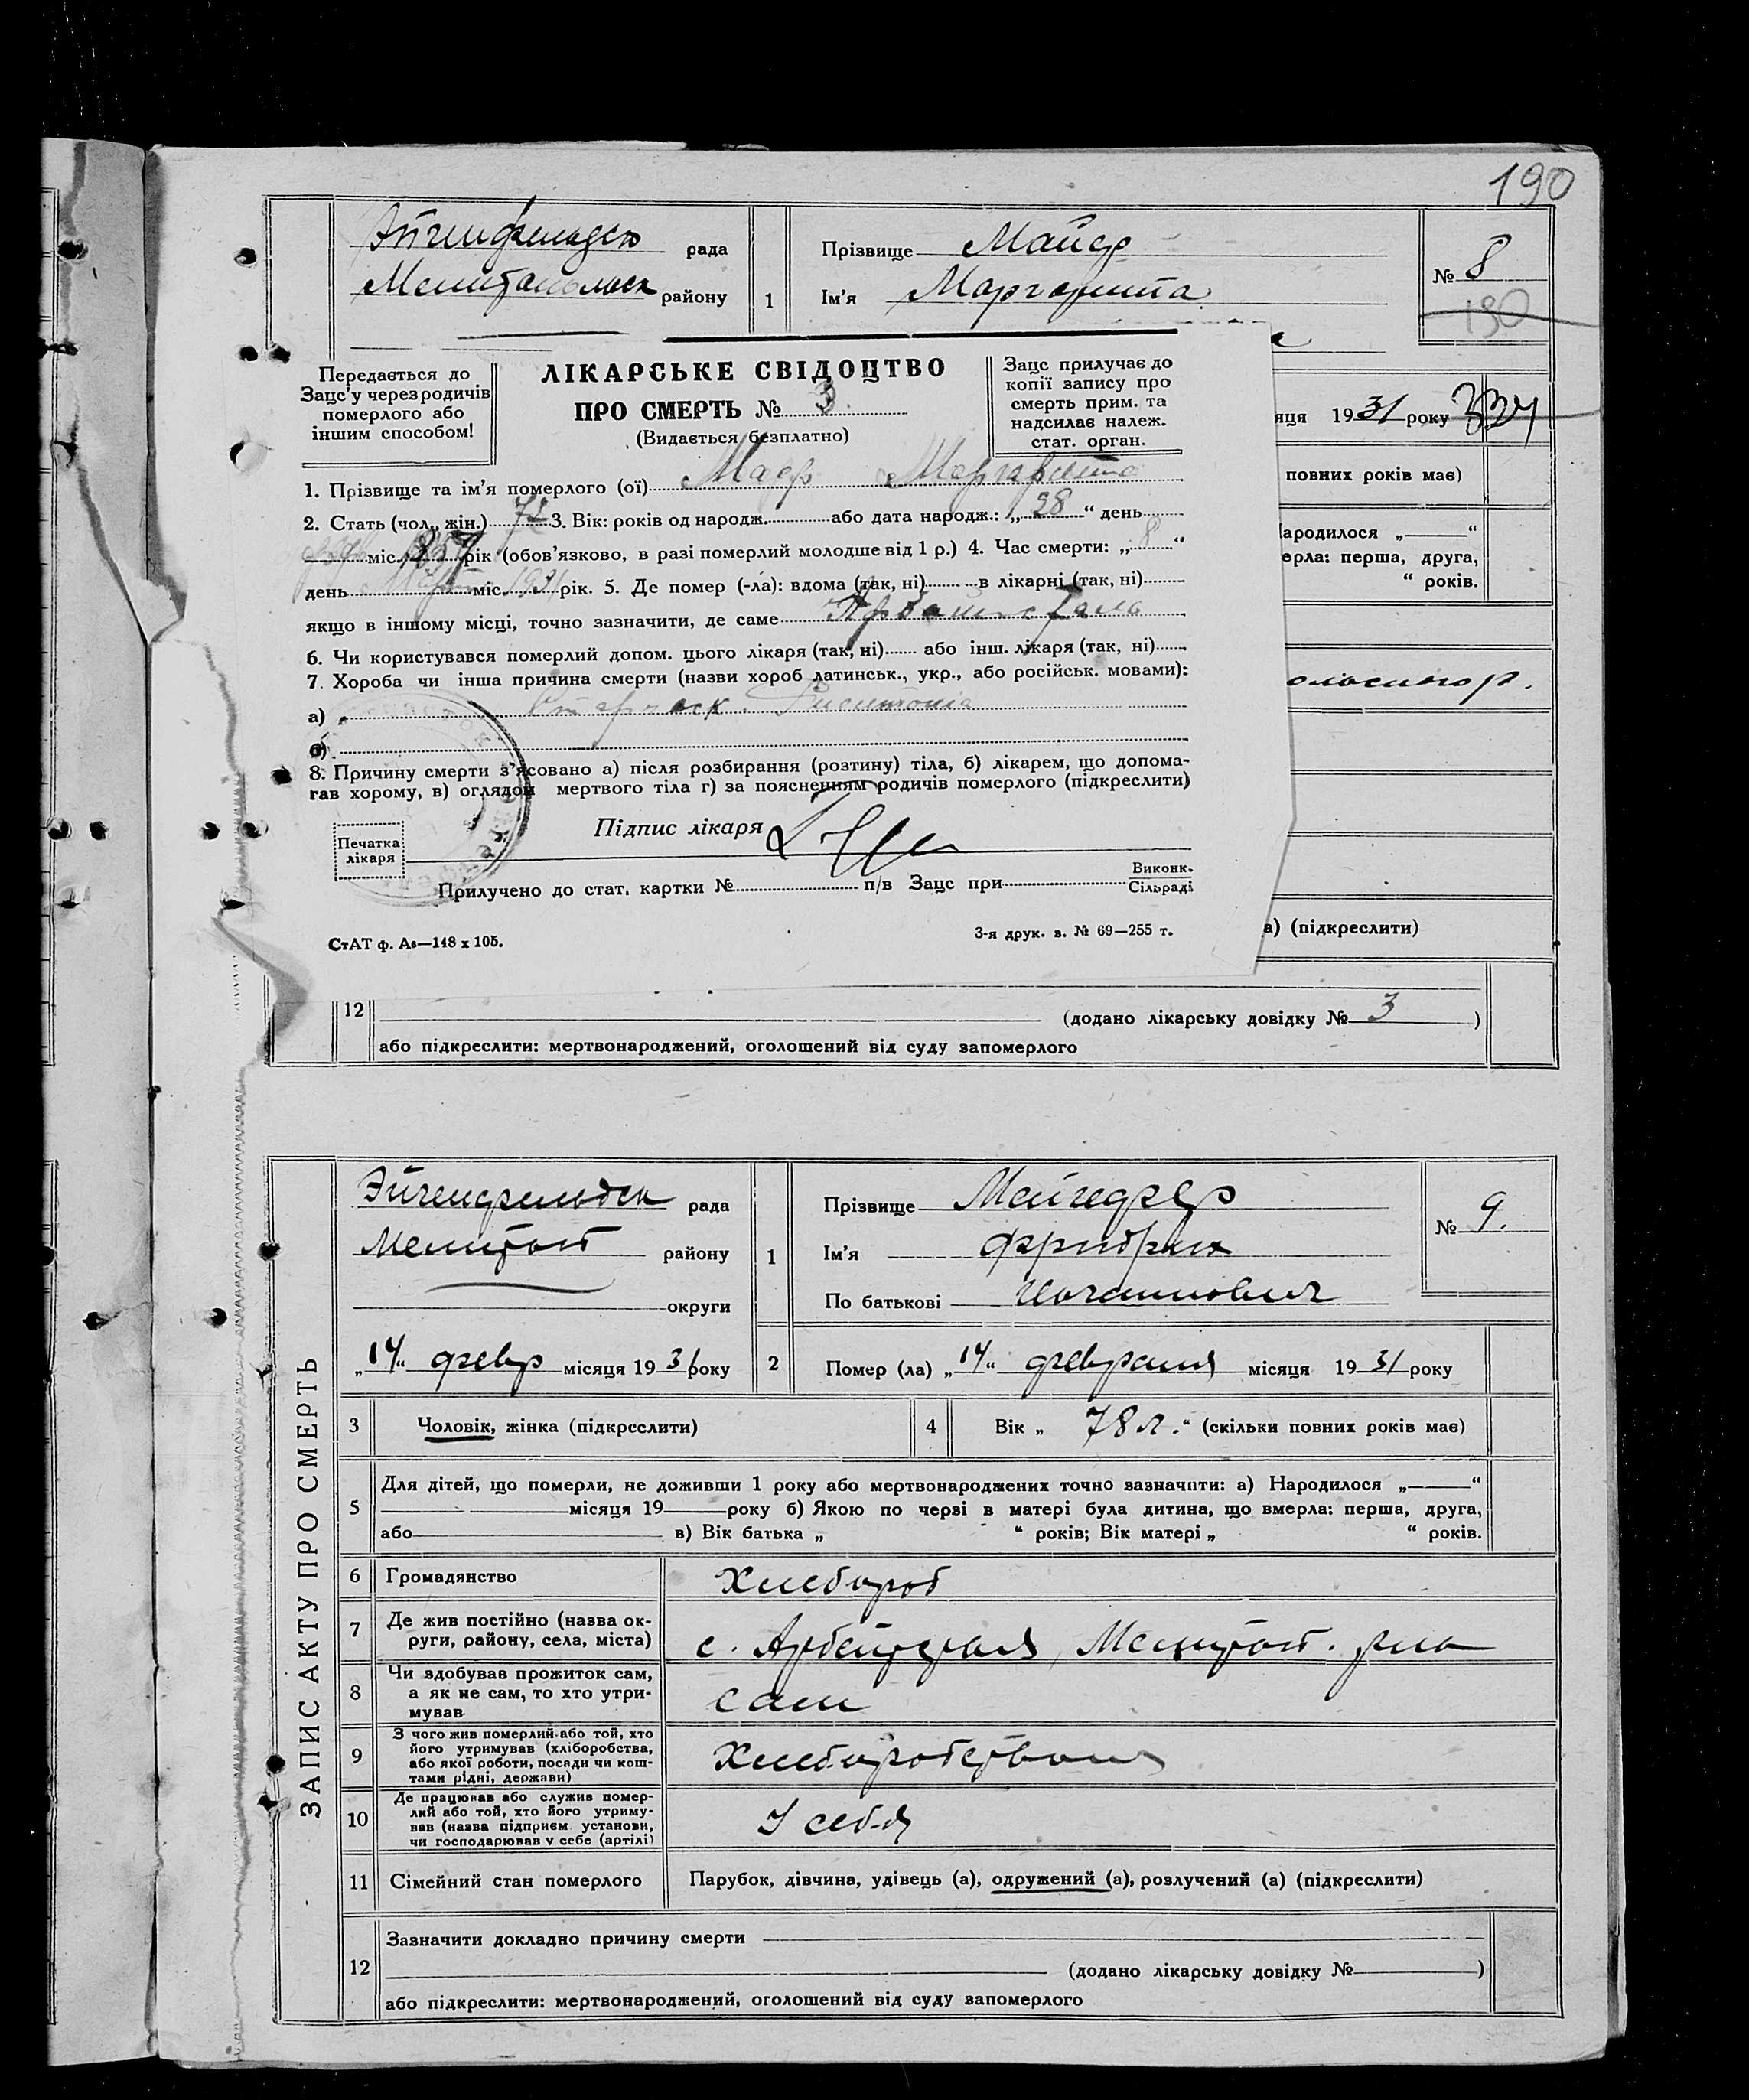 190
Эйгенфельдск рада
Мелитопольск району
1
Прізвище Майер
Ім'я Маргарита
№ 8
190
Передається до
Зацс'у через родичів
померлого або
іншим способом!
ЛІКАРСЬКЕ СВІДОЦТВО
ПРО СМЕРТЬ № 3
(Видається безплатно)
Зацс прилучає до
копії запису про
смерть прим. та
надсилає належ.
стат. орган.
яця 1931 року
1. Прізвище та ім'я померлого (ої) Маер Маргарита
повних років має)
2. Стать (чол., жін.) 3. Вік: років од народж. або дата народж.: „28“ день
міс. рік (обов'язково, в разі померлий молодше від 1 р.) 4. Час смерти: „8“
ародилося „ “
ерла: перша, друга,
“ років.
день Март міс. 1931 рік. 5. Де помер (-ла): вдома (так, ні) в лікарні (так, ні)
якщо в іншому місці, точно зазначити, де саме
6. Чи користувався померлий допом. цього лікаря (так, ні) або інш. лікаря (так, ні)
7. Хороба чи інша причина смерти (назви хороб латинськ., укр., або російськ. мовами):
а) Старческ. Pneumonia
б)
8. Причину смерти з'ясовано а) після розбирання (розтину) тіла, б) лікарем, що допома-
гав хорому, в) оглядом мертвого тіла г) за поясненням родичів померлого (підкреслити)
Печатка
лікаря
Підпис лікаря
Прилучено до стат. картки № п/в Зацс при Виконк.
Сільраді
а) (підкреслити)
СтАТ ф. Ав—148 х 105.
3-я друк. в. № 69—255 т.
12
(додано лікарську довідку № 3 )
або підкреслити: мертвонароджений, оголошений від суду запомерлого
ЗАПИС АКТУ ПРО СМЕРТЬ
Эйгенфельдск рада
Мелитоп району
округи
1
Прізвище Майгефер
Ім'я Фридрих
По батькові Иоганнович
№ 9.
„14“ февр місяця 1931 року
2
Помер (ла) „14“ февраля місяця 1931 року
3 Чоловік, жінка (підкреслити)
4 Вік „ 78 л. “ (скільки повних років має)
5
Для дітей, що померли, не доживши 1 року або мертвонароджених точно зазначити: а) Народилося „ “
місяця 19 року б) Якою по черзі в матері була дитина, що вмерла: перша, друга,
або в) Вік батька „ “ років; Вік матері „ “ років.
6 Громадянство Хлебороб
7 Де жив постійно (назва ок-
руги, району, села, міста)
с. Арбейтсталь, Мелитоп. р-на
8 Чи здобував прожиток сам,
а як не сам, то хто утри-
мував
сам
9 З чого жив померлий або той, хто
його утримував (хліборобства,
або якої роботи, посади чи кош-
тами рідні, держави)
Хлеборобством
10 Де працював або служив помер-
лий або той, хто його утриму-
вав (назва підприєм. установи,
чи господарював у себе (артілі)
У себя
11 Сімейний стан померлого
Парубок, дівчина, удівець (а), одружений (а), розлучений (а) (підкреслити)
12
Зазначити докладно причину смерти
(додано лікарську довідку № )
або підкреслити: мертвонароджений, оголошений від суду запомерлого